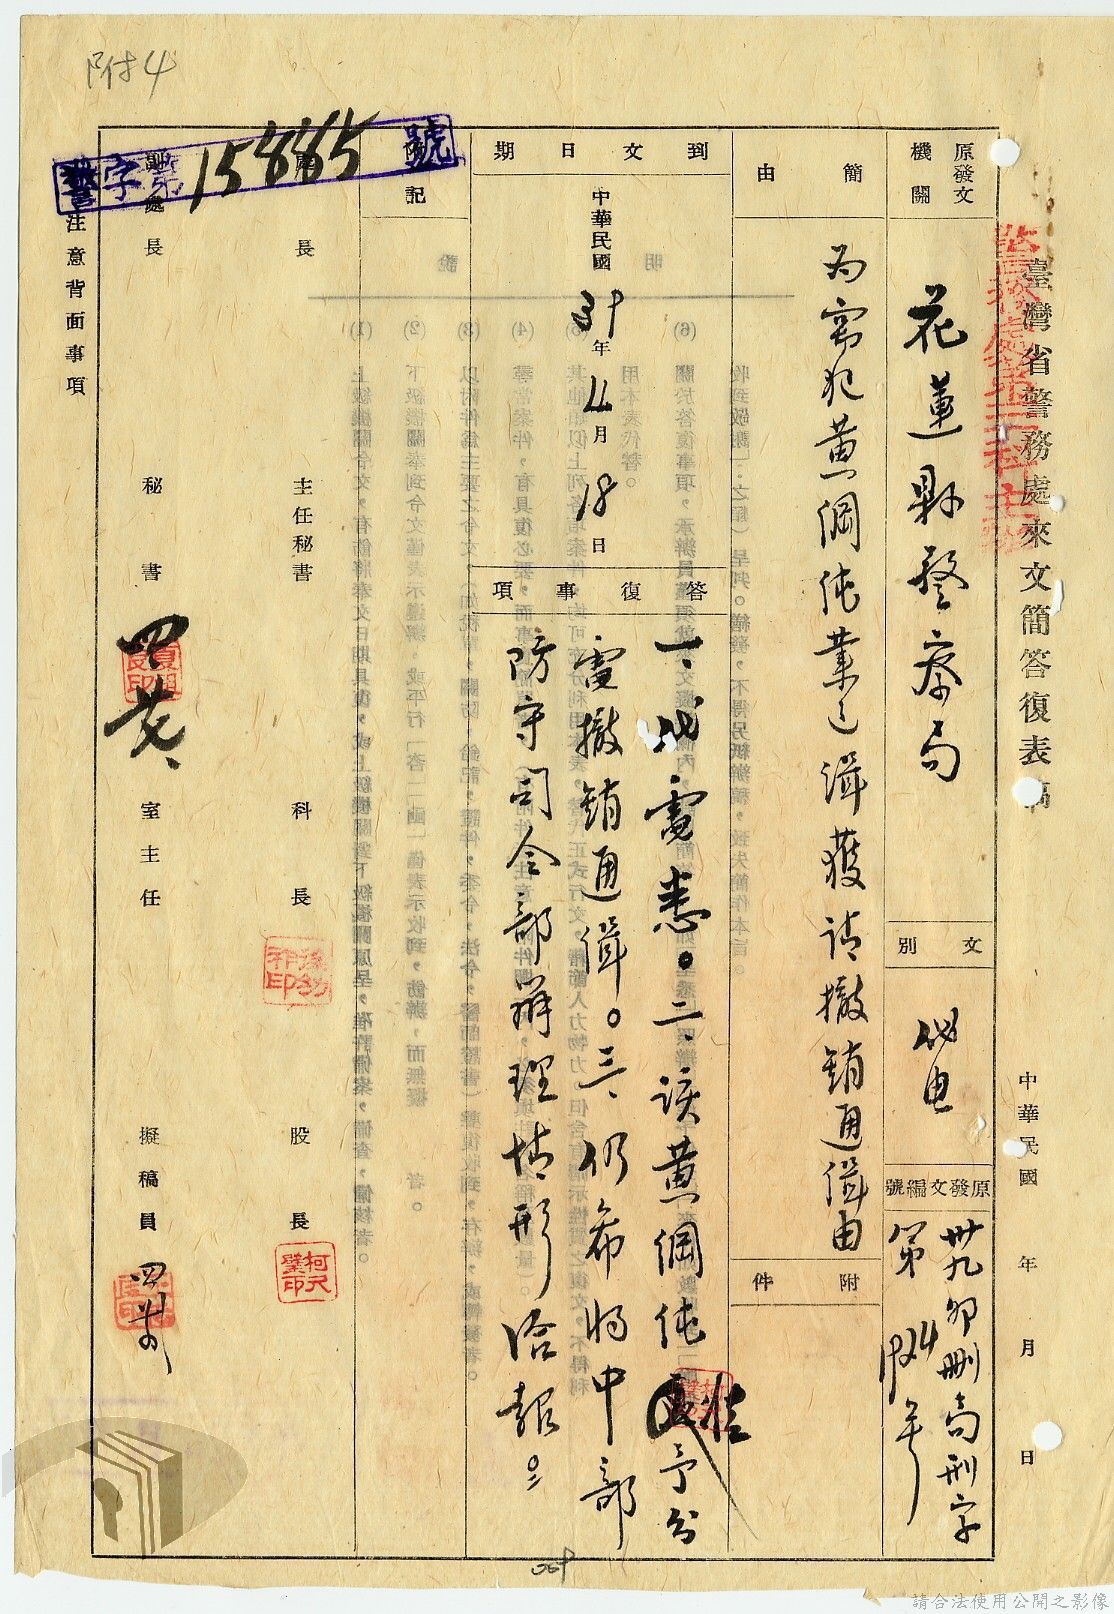 附4
警字第15885號
臺灣省警務處來文簡答復表稿
中華民國 年 月 日
原發文機關
花蓮縣警察局
文別
代电
原發文編號
卅九卯刪高刑字
第1924号
簡由
為常犯黃綢純業已緝獲請撤銷通緝由
附件
到文日期
中華民國39年4月18日
答復事項
一、代電悉。二、該黃綢純准予分
電撤銷通緝。三、仍希將中部
防守司令部辦理情形洽報。
附記
處長
主任秘書
科長
股長
副處長
秘書
室主任
擬稿員
注意背面事項
請合法使用公開之影像